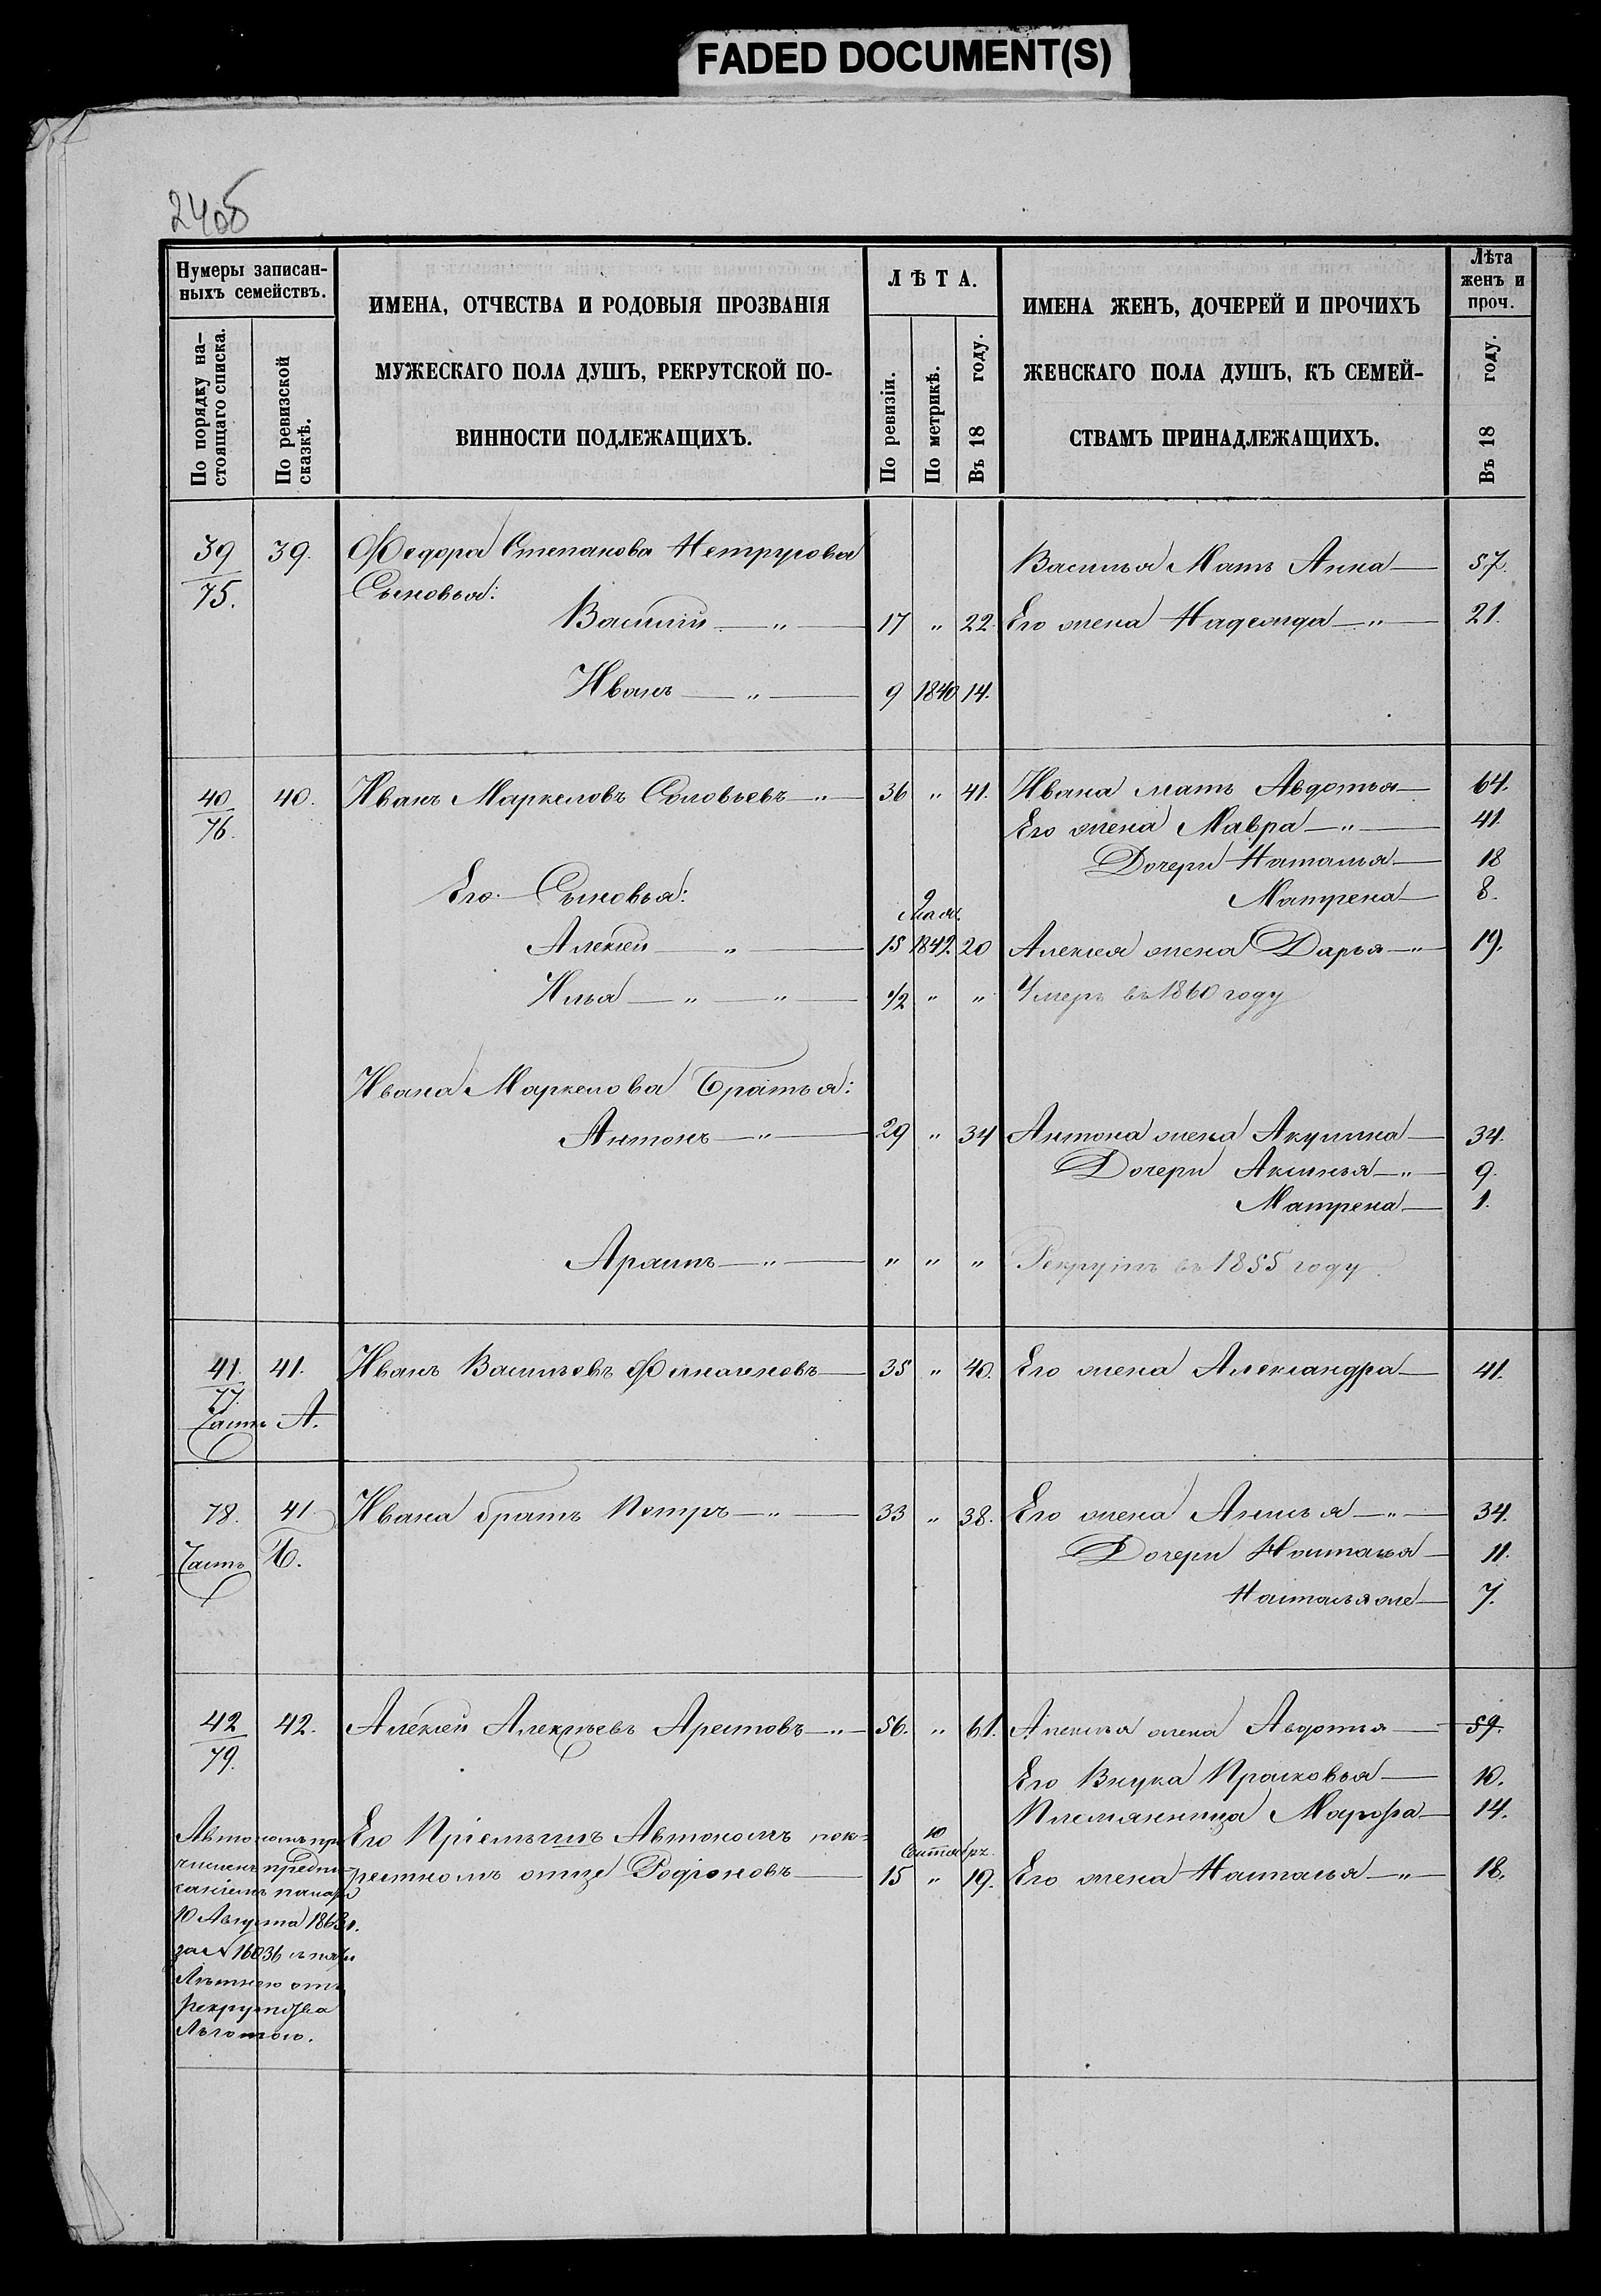 FADED DOCUMENT(S)
24об
Нумеры записан-
ныхъ семействъ.
По порядку на-
стоящаго списка.
По ревизской
сказкѣ.
ИМЕНА, ОТЧЕСТВА И РОДОВЫЯ ПРОЗВАНІЯ
МУЖЕСКАГО ПОЛА ДУШЪ, РЕКРУТСКОЙ ПО-
ВИННОСТИ ПОДЛЕЖАЩИХЪ.
ЛѢТА.
По ревизіи.
По метрикѣ.
Въ 18 году.
ИМЕНА ЖЕНЪ, ДОЧЕРЕЙ И ПРОЧИХЪ
ЖЕНСКАГО ПОЛА ДУШЪ, КЪ СЕМЕЙ-
СТВАМЪ ПРИНАДЛЕЖАЩИХЪ.
Лѣта
женъ и
проч.
Въ 18 году.
39 39. Федора Степанова
75. Сыновья:
Василья Мать Анна — 57.
Василій — " — 17 " 22. Его жена Надежда — " — 21.
Иванъ — " — 9 1840 14.
40 40. Иванъ Маркеловъ Соловьевъ — " — 36 " 41. Ивана мать Авдотья — 64.
76. Его жена Мавра — " — 41.
Дочери Наталья — 18
Его Сыновья: 9 Мая Матрена — 8.
Алексѣй — " — 15 1842. 20 Алексѣя жена Дарья — " — 19.
Илья — " — " — 1/2 " " Умеръ въ 1860 году
Ивана Маркелова Братья:
Антонъ — " — 29 " 34 Антона жена Акулина — 34.
Дочери Аксинья — " — 9.
Матрена — 1.
" — " " " Рекрутъ въ 1855 году.
41. 41. Иванъ Васильевъ — 35 " 40. Его жена Александра — 41.
77.
Часть А.
78. 41 Ивана братъ Петръ — " — 33 " 38. Его жена — " — 34.
Часть Б. Дочери Наталья — 11.
Наталья же — 7.
42 42. Алексѣй Алексѣевъ — " — 56. " 61. Алексѣя жена Авдотья — 59.
79.
Его Внука Прасковья — 10.
Племянница Марфа — 14.
Автономъ при- Его Пріемышъ Автономъ пок- 10 Сентября
численъ предпи- рестномъ отцѣ Родіоновъ — 15 " 19. Его жена Наталья — " — 18.
саніемъ палаты
10 Августа 1863 г.
за N 16036 съ пяти
Лѣтнею отъ
рекрутства
Льготою.